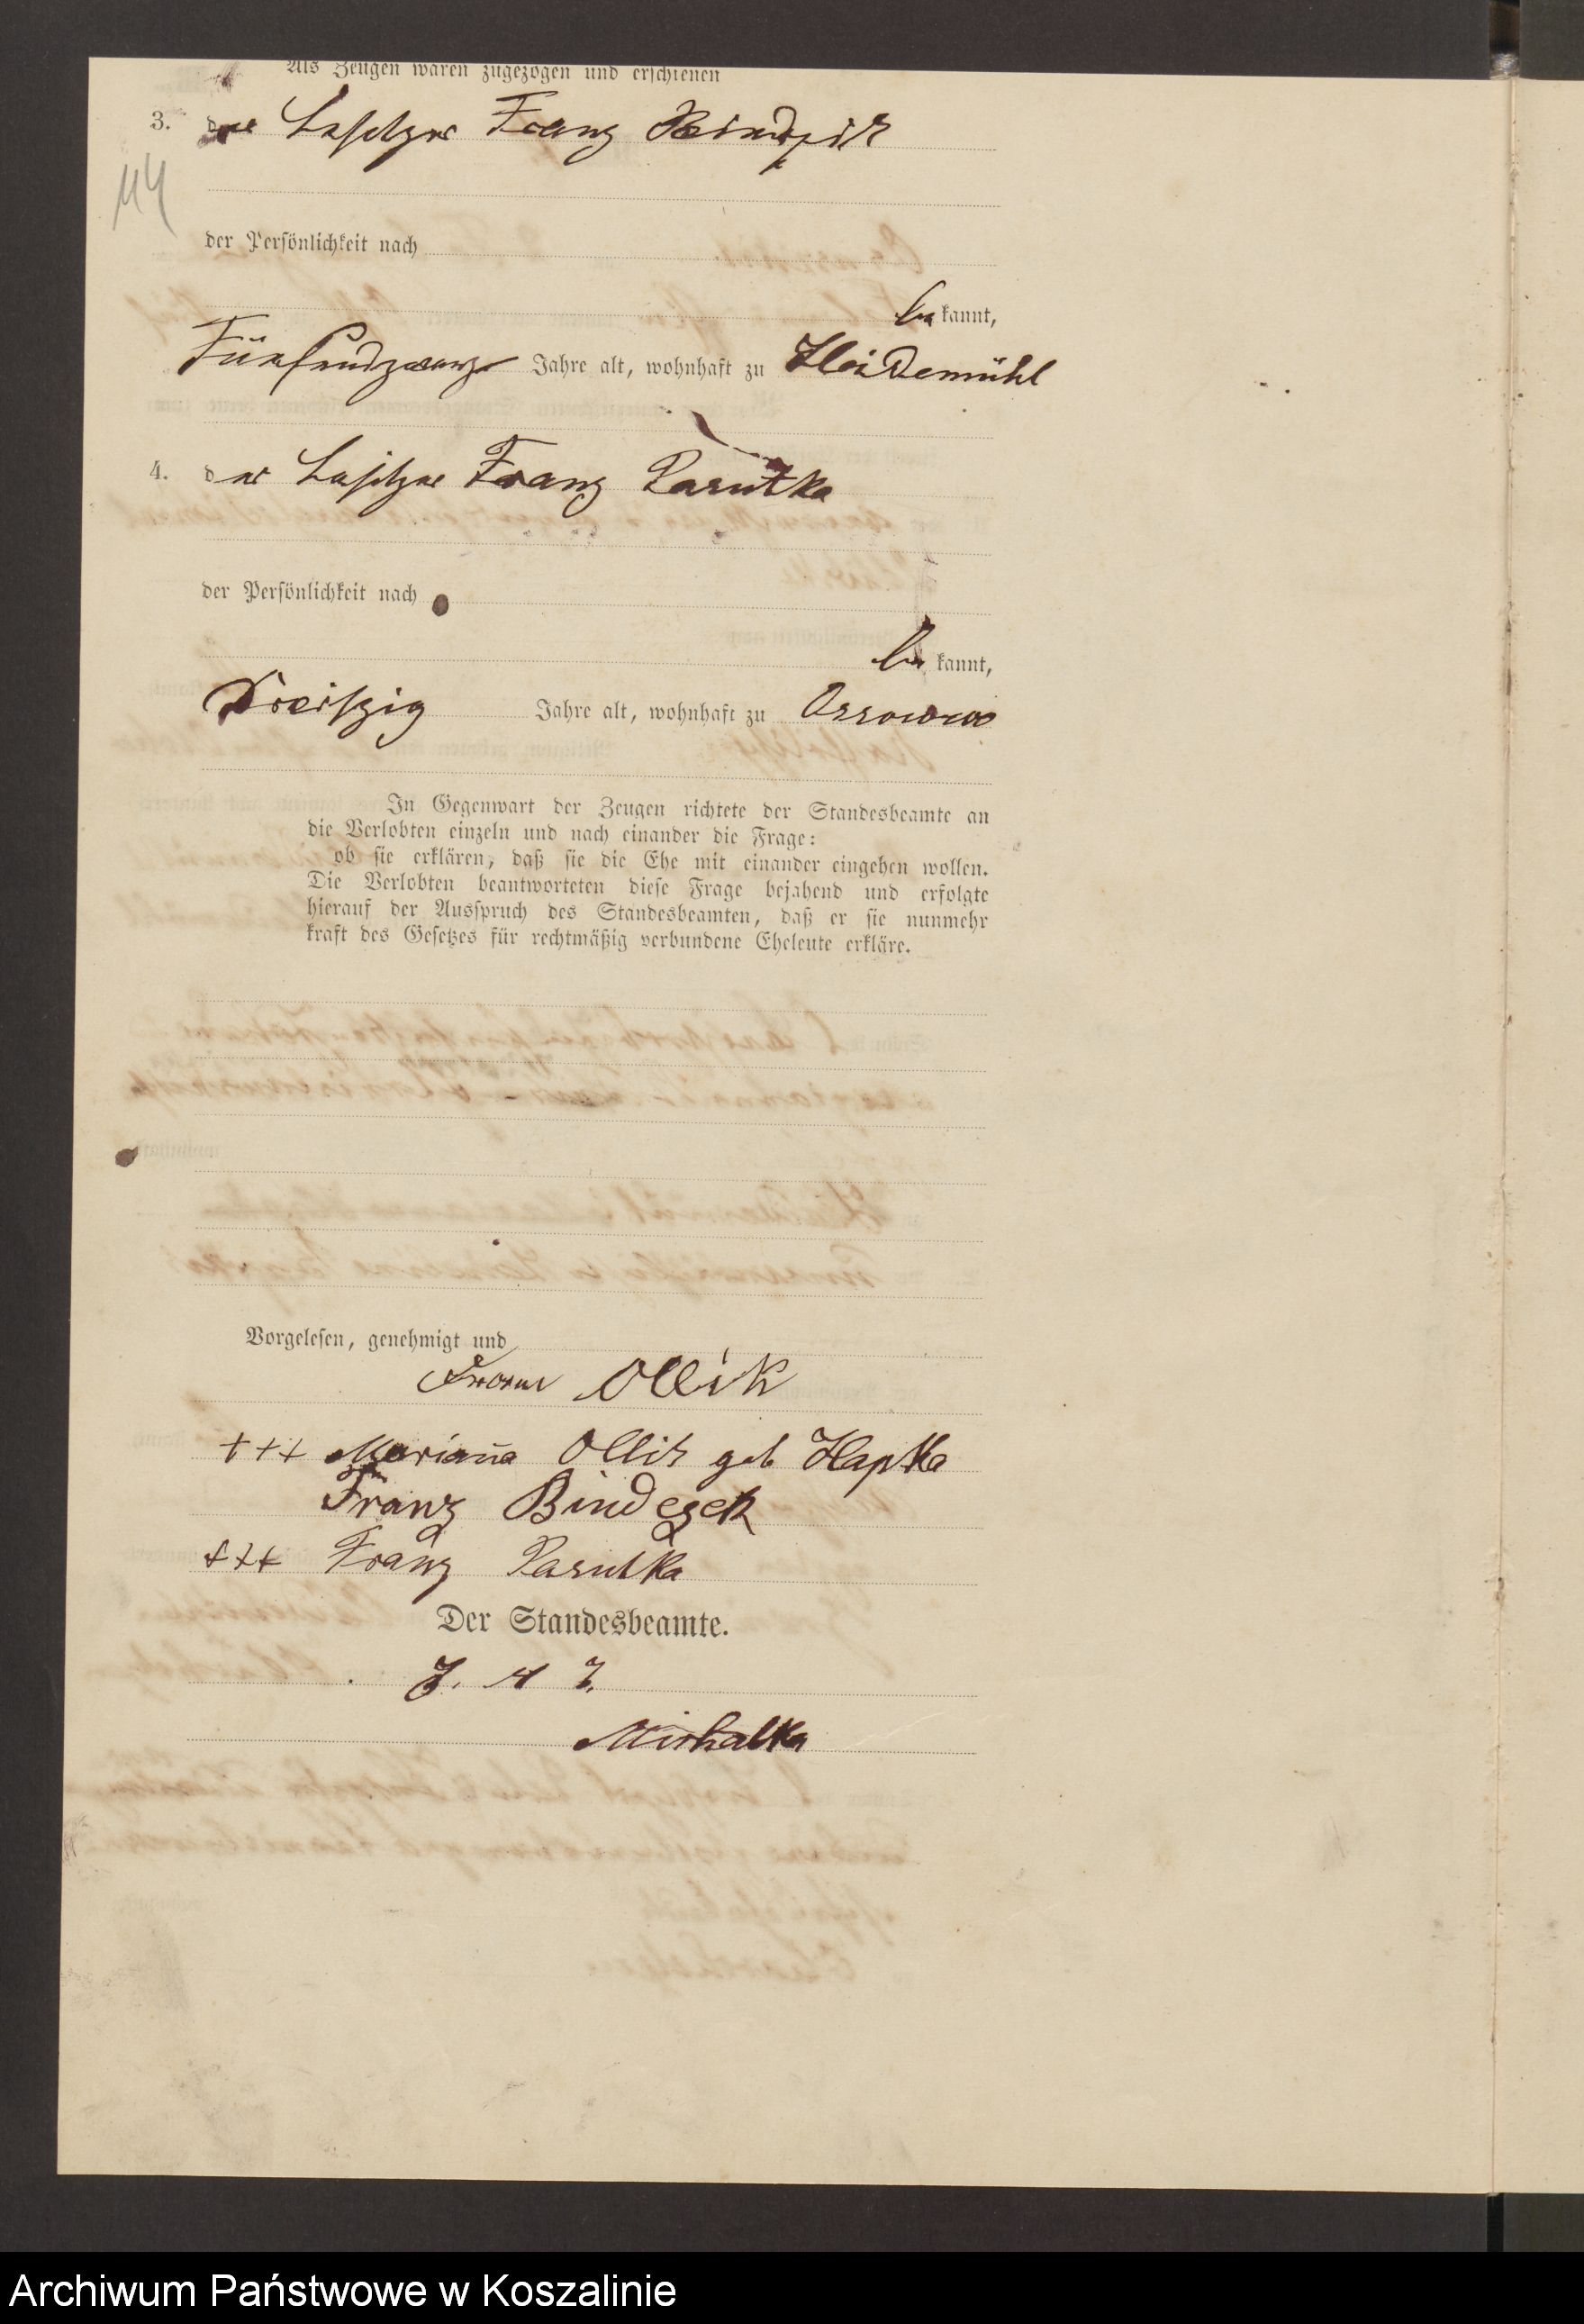 Als Zeugen waren zugezogen und erschienen
3. der Besitzer Franz
114
der Persönlichkeit nach
be kannt,
Jahre alt, wohnhaft zu Heidemühl
4. der Besitzer Franz Pasutka
der Persönlichkeit nach
be kannt,
Dreiszig Jahre alt, wohnhaft zu Ossowo
In Gegenwart der Zeugen richtete der Standesbeamte an
die Verlobten einzeln und nach einander die Frage:
ob sie erklären, daß sie die Ehe mit einander eingehen wollen.
Die Verlobten beantworteten diese Frage bejahend und erfolgte
hierauf der Ausspruch des Standesbeamten, daß er sie nunmehr
kraft des Gesetzes für rechtmäßig verbundene Eheleute erkläre.
Vorgelesen, genehmigt und
Ollik
+++ Marianna Ollik geb Hapka
Franz Bindezek
+++ Franz Pasutka
Der Standesbeamte.
Archiwum Państwowe w Koszalinie